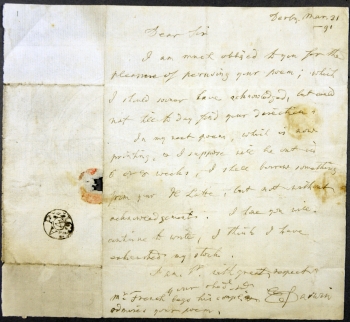 Derby, Mar. 21
-91
Dear Sir
I am much obliged to you for the
pleasure of perusing your poem; which
I should sooner have acknowledged, but could
not till to day find your direction.
In my next poem, which is now
printing, & I suppose will be out in
weeks, I shall borrow something
from your but not without
acknowledgement. I hope you will
continue to write, I think I have
exhausted my stock.
I am, Sr, with great respect
your obed. ser.
E Darwin
Mr French says his
admires your poem.